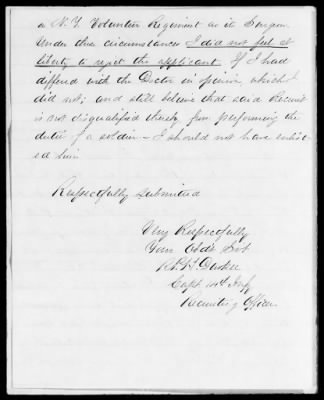 a N.Y. Volunteer Regiment as its Surgeon.
Under these circumstances I did not feel at
liberty to reject the applicant. If I had
differed with the Doctor in opinion, which I
did not; and still believe that said Recruit
is not disqualified thereby from performing the
duties of a soldier – I should not have enlist-
ed him.
Respectfully submitted
Very Respectfully
Your Obdt Svt
Capt. 14th Infy
Recruiting Officer